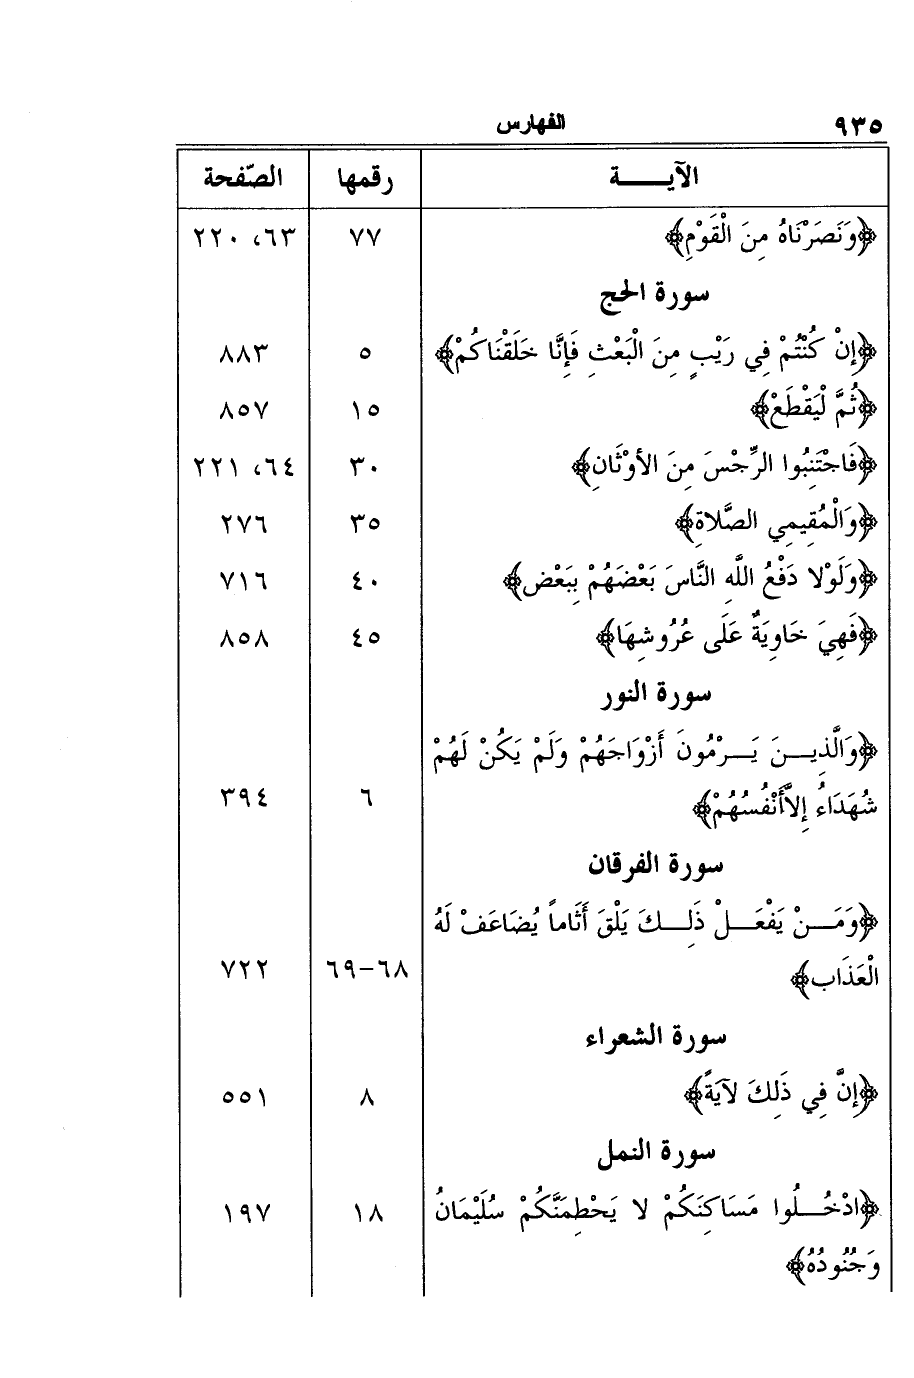 ٩٣٥ الفهارس
الآيــــــة رقمها الصّفحة
﴿وَنَصَرْنَاهُ مِنَ الْقَوْمِ﴾ ٧٧ ٦٣، ٢٢٠
سورة الحج
﴿إِنْ كُنْتُمْ فِي رَيْبٍ مِنَ الْبَعْثِ فَإِنَّا خَلَقْنَاكُمْ﴾ ٥ ٨٨٣
﴿ثُمَّ لْيَقْطَعْ﴾ ١٥ ٨٥٧
﴿فَاجْتَنِبُوا الرِّجْسَ مِنَ الأوْثَانِ﴾ ٣٠ ٦٤، ٢٢١
﴿وَالْمُقِيمِي الصَّلاةِ﴾ ٣٥ ٢٧٦
﴿وَلَوْلا دَفْعُ اللَّهِ النَّاسَ بَعْضَهُمْ بِبَعْضٍ﴾ ٤٠ ٧١٦
﴿فَهِيَ خَاوِيَةٌ عَلَى عُرُوشِهَا﴾ ٤٥ ٨٥٨
سورة النور
﴿وَالَّذِيـــنَ يَـــرْمُونَ أَزْوَاجَهُمْ وَلَمْ يَكُنْ لَهُمْ
شُهَدَاءُ إِلاَّأَنْفُسُهُمْ﴾ ٦ ٣٩٤
سورة الفرقان
﴿وَمَـــنْ يَفْعَـــلْ ذَلِـــكَ يَلْقَ أَثَاماً يُضَاعَفْ لَهُ
الْعَذَاب﴾ ٦٨-٦٩ ٧٢٢
سورة الشعراء
﴿إِنَّ فِي ذَلِكَ لآيَةً﴾ ٨ ٥٥١
سورة النمل
﴿ادْخُـــلُوا مَسَاكِنَكُمْ لا يَحْطِمَنَّكُمْ سُلَيْمَانُ ١٨ ١٩٧
وَجُنُودُهُ﴾